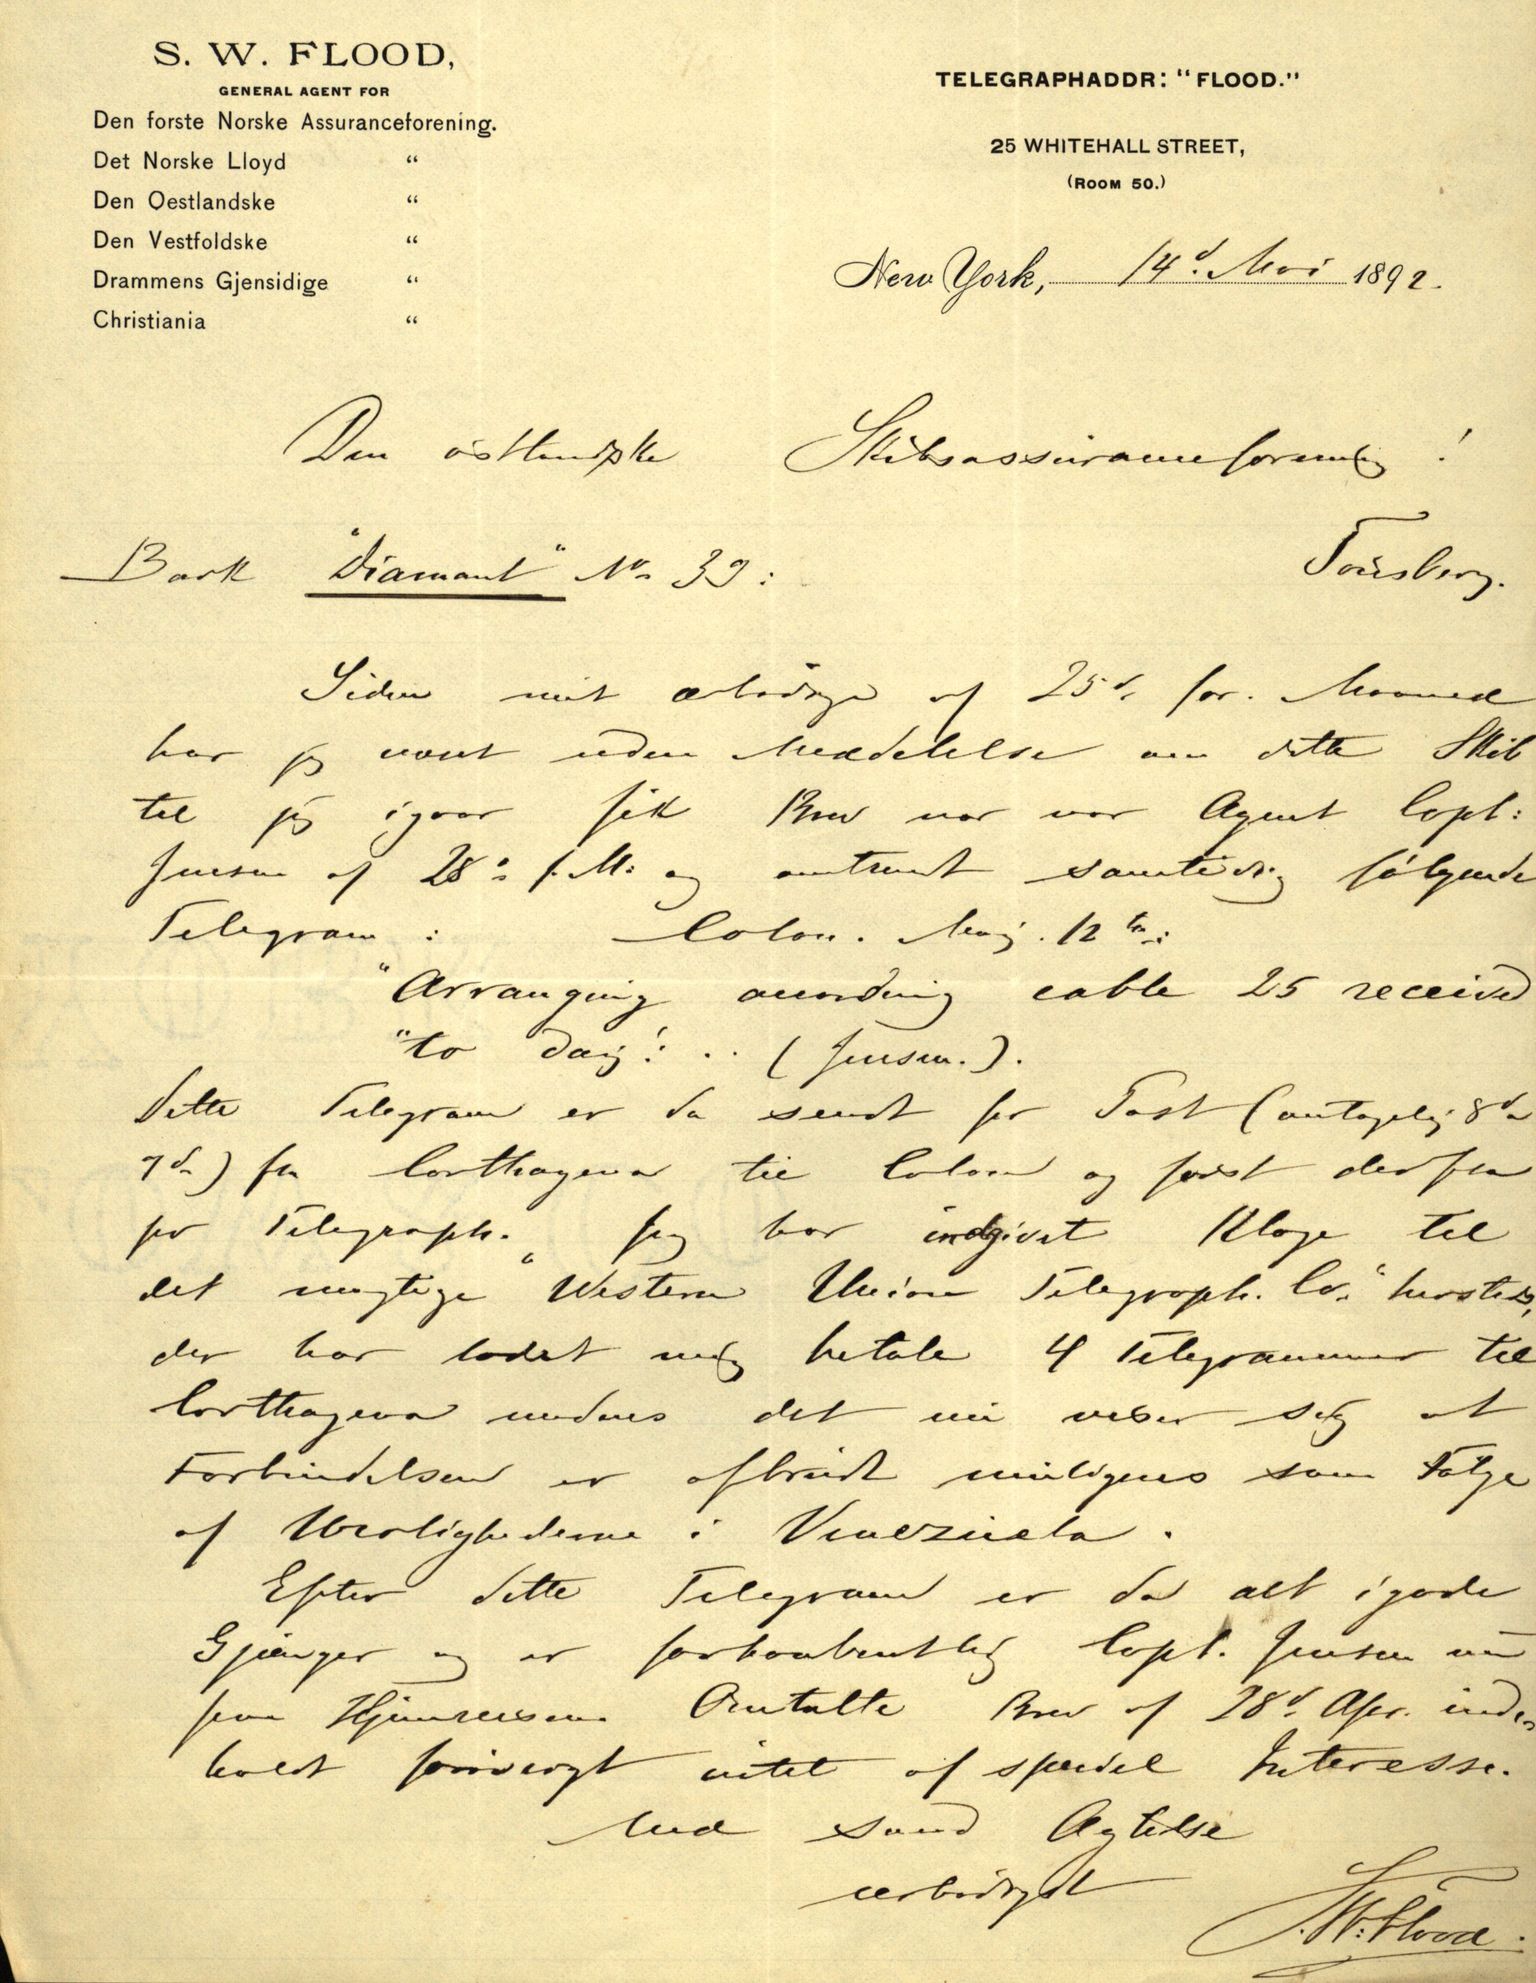 S. W. FLOOD,
GENERAL AGENT FOR
Den forste Norske Assuranceforening.
Det Norske Lloyd "
Den Oestlandske "
Den Vestfoldske "
Drammens Gjensidige "
Christiania "
TELEGRAPHADDR: "FLOOD."
25 WHITEHALL STREET,
(ROOM 50.)
New York, 14d. Mai 1892.
Den östlandske Skibsassuranceforening!
Tönsberg.
Bark "Diamant" No. 39:
Siden mit ærbödige af 25d. for. Maaned
har jeg været uden Meddelelse om dette Skib
til jeg igaar fik Brev vor Agent Capt:
Jensen af 28d. f. M: og omtrent samtidig følgende
Telegram: Colon. Maj. 12th:
"Arranging according cable 25 received
"to day!.. (Jensen.).
Dette Telegram er da sendt per Post (antagelig 8d a
7d.) fra Carthagena til Colon og först derfra
per Telegraph. Jeg har indgivet Klage til
det mægtige "Western Union Telegraph. Co." hersteds,
der har ladet mig betale 4 Telegrammer til
Carthagena medens det nu viser sig at
Forbindelsen er afbrudt muligens som Følge
af Urolighederne i Venezuela.
Efter dette Telegram er da alt igode
Gjænger og er forhaabentlig Capt. Jensen nu
paa Hjemreisen. Omtalte Brev af 28d. Apr. inde-
holdt forövrigt intet af speciel Interesse.
Med sand Agtelse
ærbödigst
S. W. Flood.